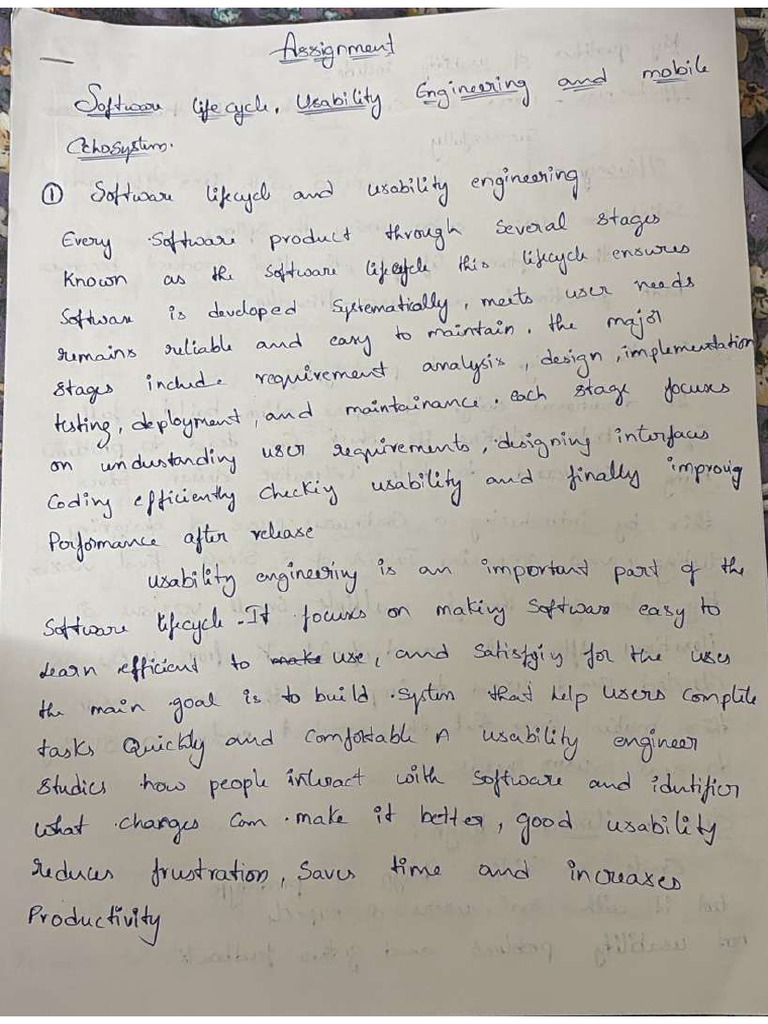 Assignment
Software life cycle, Usability Engineering and mobile
Echosystem.
① Software lifecycl and usability engineering
Every software product through several stages
known as the software life cycle this lifecycle ensures
software is developed systematically, meets user needs
remains reliable and easy to maintain. the major
stages include requirement analysis, design, implementation
testing, deployment, and maintainance. each stage focuses
on understanding user requirements, designing interfaces
coding efficiently checking usability and finally improvig
Performance after release
usability engineering is an important part of the
software lifecycle. It focuses on making software easy to
learn efficient to make use, and satisfgiy for the uses
the main goal is to build system that help users complete
tasks Quickly and comfortable A usability engineer
studies how people interact with software and identifies
what changes can make it better, good usability
reduces frustration, Saves time and increases
Productivity